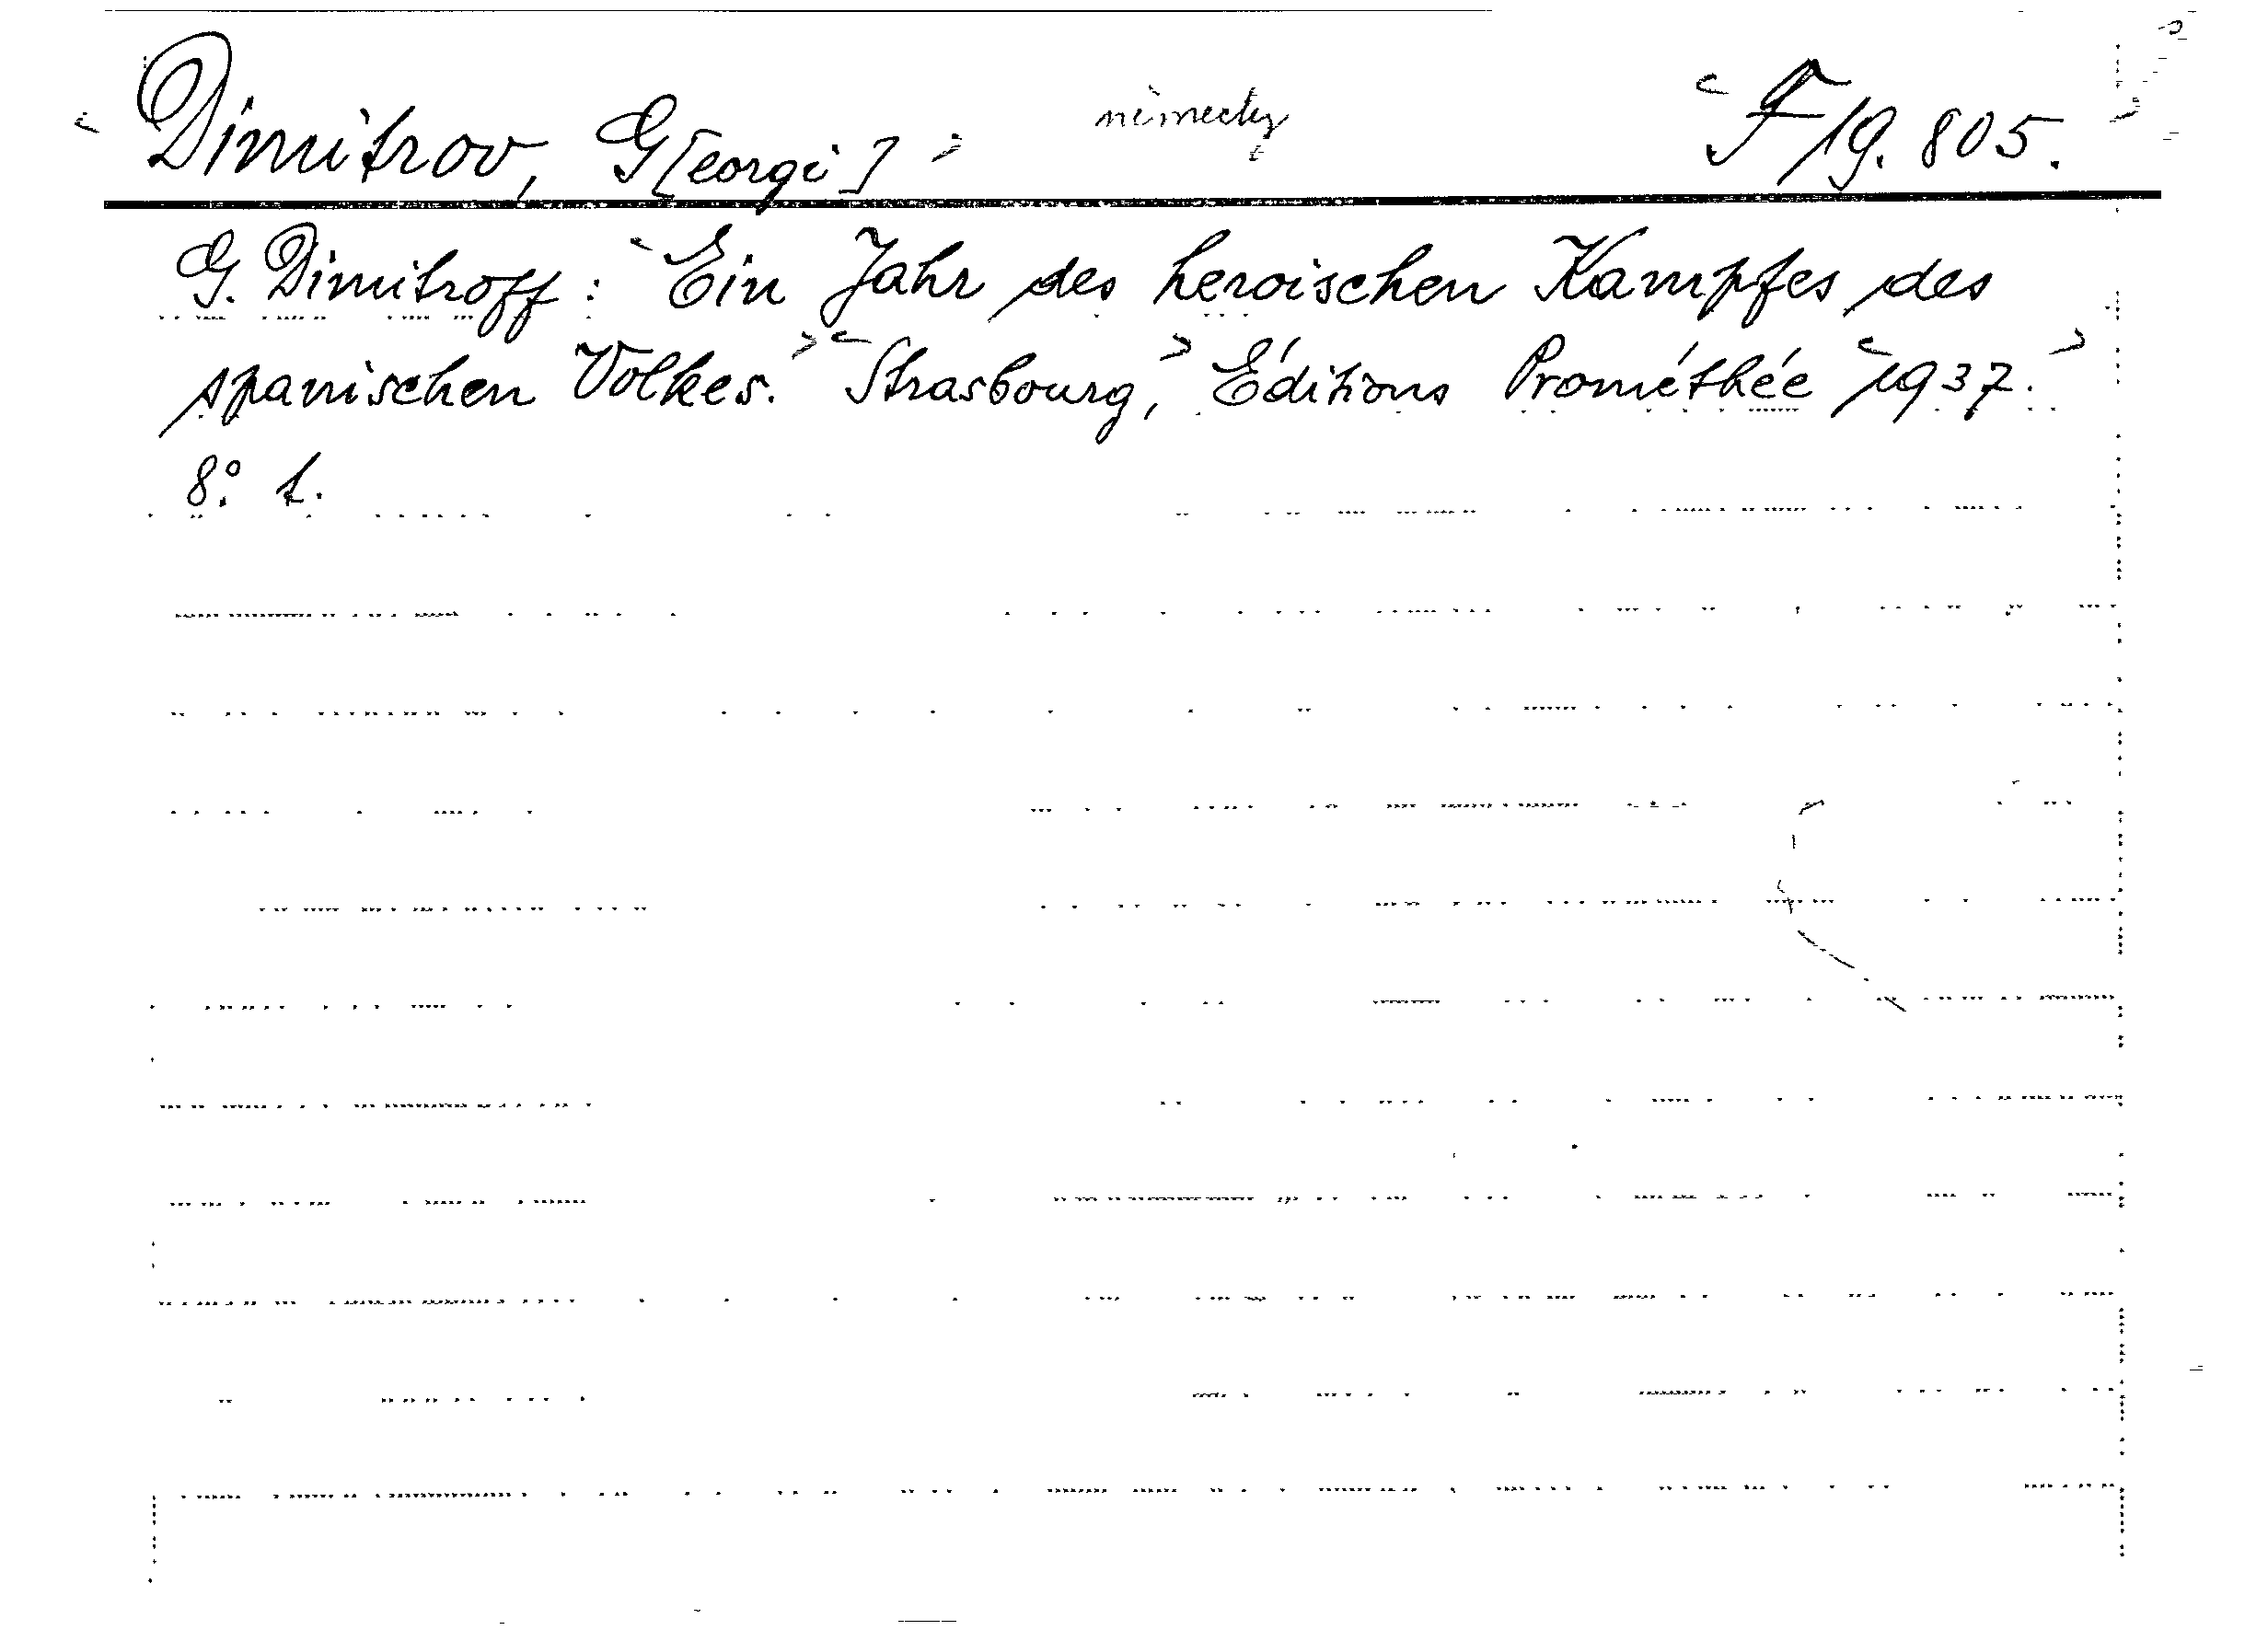 Dimitrov, G[eorgi] německy F 19.805.
G. Dimitroff: Ein Jahr des heroischen Kampfes des
spanischen Volkes. Strasbourg, Éditions Prométhée 1937.
8°. t.